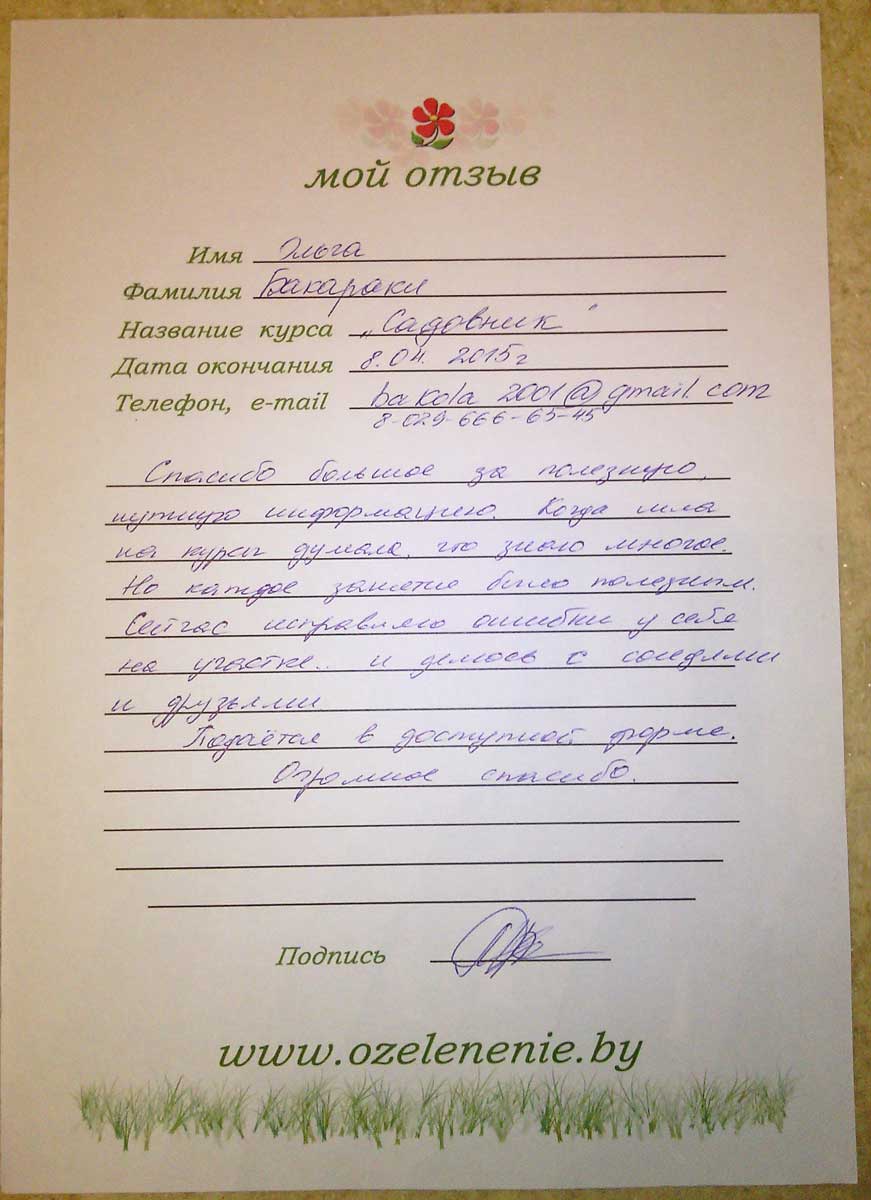 мой отзыв
Имя Ольга
Фамилия Бакараки
Название курса „Садовник"
Дата окончания 8.04. 2015г
Телефон, e-mail bakola 2001@gmail.com
8-029-666-65-45
Спасибо большое за полезную,
нужную информацию. Когда шла
на курсы думала, что знаю многое.
Но каждое занятие было полезным.
Сейчас исправляю ошибки у себя
на участке.. и делюсь с соседями
и друзьями
Подаётся в доступной форме.
Огромное спасибо.
Подпись
www.ozelenenie.by